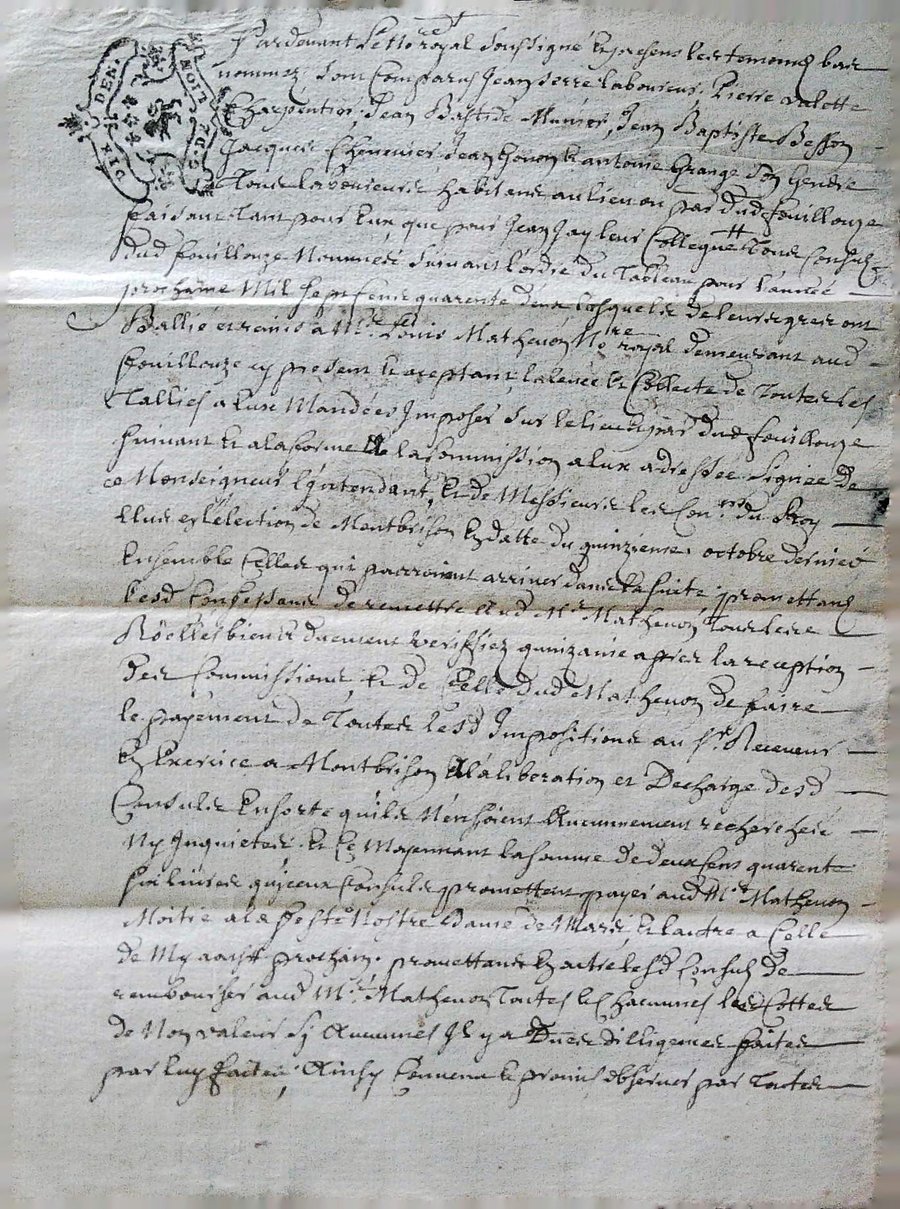 DIX DEN. G. D. LION
Pardevant Le no.re royal soussigné Et presens les temoins bas
nommez, sont Comparus Jean serre laboureur, Pierre valette
Charpentier, Jean Bastide Munier, Jean Baptiste Besson
Jacques Jean Et antoine Grange son Gendre
Tous laboureurs habitans au lieu ou par. dud fouillouze
faisant Tant pour Eux que pour Jean Jay leur Collegue Tous Consuls
dud fouillouze Nommés suivant l'ordre du Tableau pour l'année
prochaine Mil sept Cens quarente deux lesquels de leurs grés ont
Ballié et remis a Mre Louis Mathevon No.re royal demeurant aud
fouillouze cy present Et aceptant la levée Et Collecte de Toutes les
Tallies a Eux Mandées Imposer sur le lieu Et par. dud fouillouze
suivant Et a la forme de la Commission a Eux adressée Signée de
Monseigneur l'jntendant, Et de Messieurs les Con.ers du Roy
Elus en L'election de Montbrison En datte du quinzieme octobre dernier
Ensemble Celles qui pourroient arriver dans la suite promettans
lesd Consuls de remettre aud Mre Mathevon Tous les
Röolles biens duement veriffiez quinzaine apres la reception
Des Commissions, Et de Celle dud Mathevon de faire
le payement de Toutes lesd Impositions au Sr. Receveur
En Exercice a Montbrison Et a la liberation et Decharge desd
Consuls Ensorte qu'ils N'en soient Aucunement recherchés
Ny Inquietés Et Ce Moyennant la somme de deux Cens quarente
six livres qu'jceux Consuls promettent payer aud Mre Mathevon
Moitié a la feste Nostre Dame de Mars, Et l'autre a Celle
de My aoust prochain. promettans En outre lesd Consuls de
rembourser aud Mre Mathevon Toutes Les Cottes
de Non valeur sy Aucunes Il y a Dues dilligences faites
par luy faites, Ainsy Convenu Et promis observer par Toutes